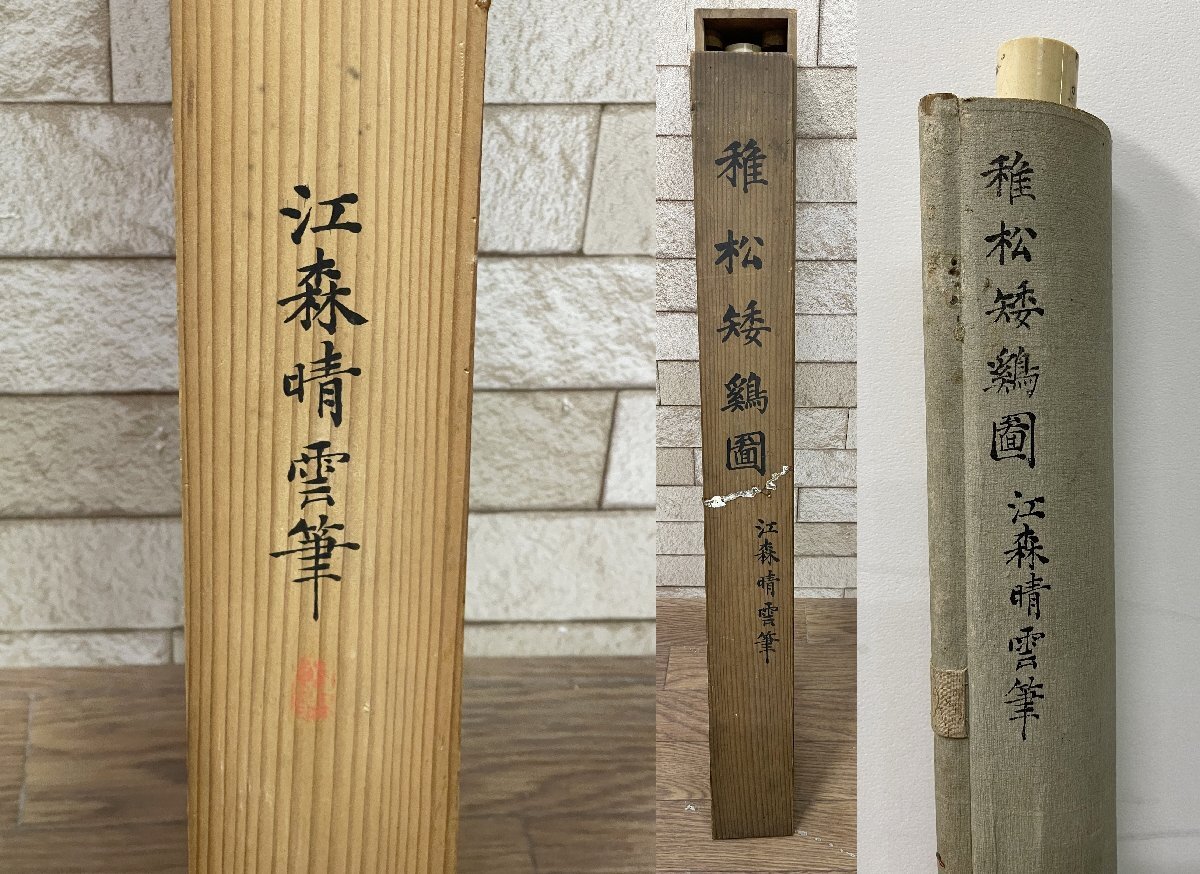 江森晴雲筆
稚松矮鷄圖
江森晴雲筆
稚松矮鷄圖
江森晴雲筆